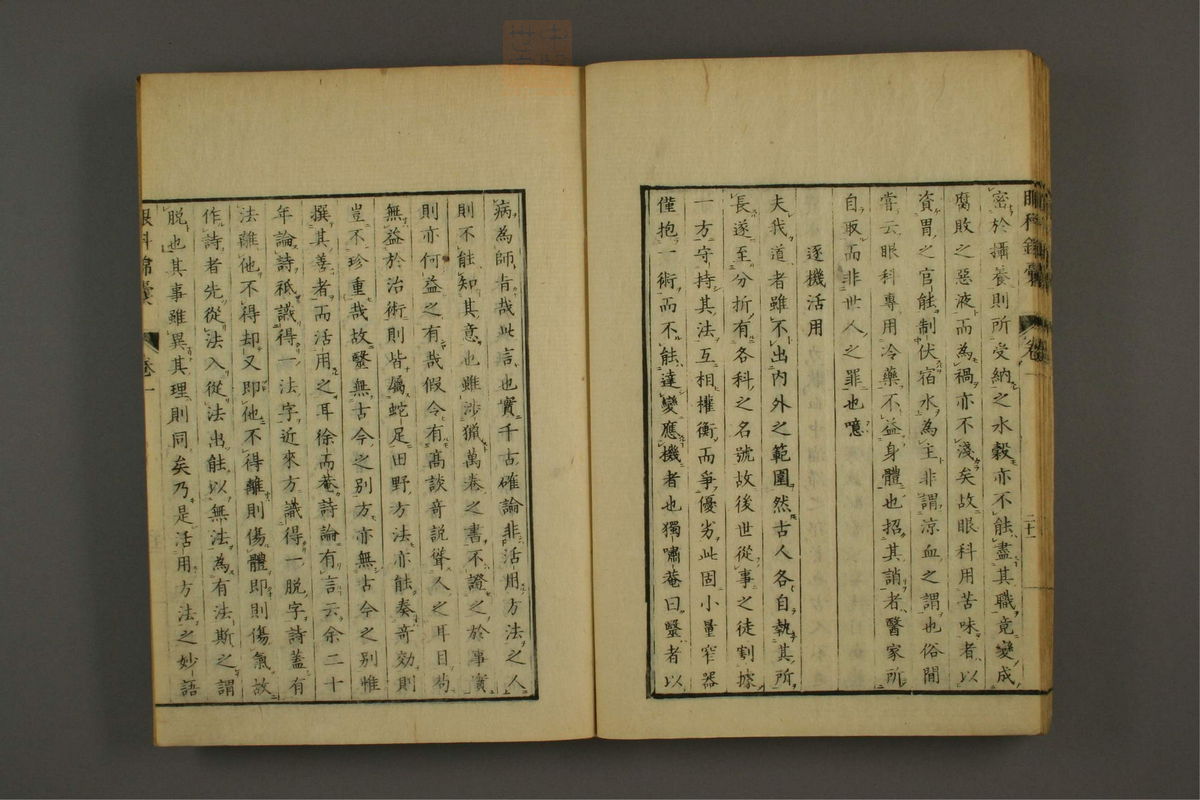 眼科錦囊 卷一 二十一
密於攝養則所受納之水穀亦不能盡其職竟變成
腐敗之惡液而為禍亦不淺矣故眼科用苦味者以
資胃之官能制伏宿水為主非謂涼血之謂也俗間
嘗云眼科專用冷藥不益身體也招其誚者醫家所
自取而非世人之罪也噫
逐機活用
夫我道者雖不出內外之範圍然古人各自執其所
長遂至分折有各科之名號故後世從事之徒割據
一方守持其法互相權衡而爭優劣此固小量窄器
僅抱一術而不能達變應機者也獨嘯菴曰毉者以
病為師旨哉此言也實千古確論非活用方法之人
則不能知其意也雖涉獵萬卷之書不證之於事實
則亦何益之有哉假令有高談奇說聳人之耳目狗
無益於治術則皆屬蛇足田野方法亦能奏奇効則
豈不珍重哉故毉無古今之別方亦無古今之別惟
撰其善者而活用之耳徐而菴詩論有言云余二十
年論詩祗識得一法字近來方識得一脫字詩蓋有
法離他不得却又即他不得離則傷體即則傷氣故
作詩者先從法入從法出能以無法為有法斯之謂
脫也其事雖異其理則同矣乃是活用方法之妙語
眼科錦囊 卷一